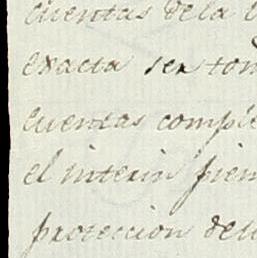 cuentas dela
exacta ser tom
cuentas comple
el interin pien
proteccion dell